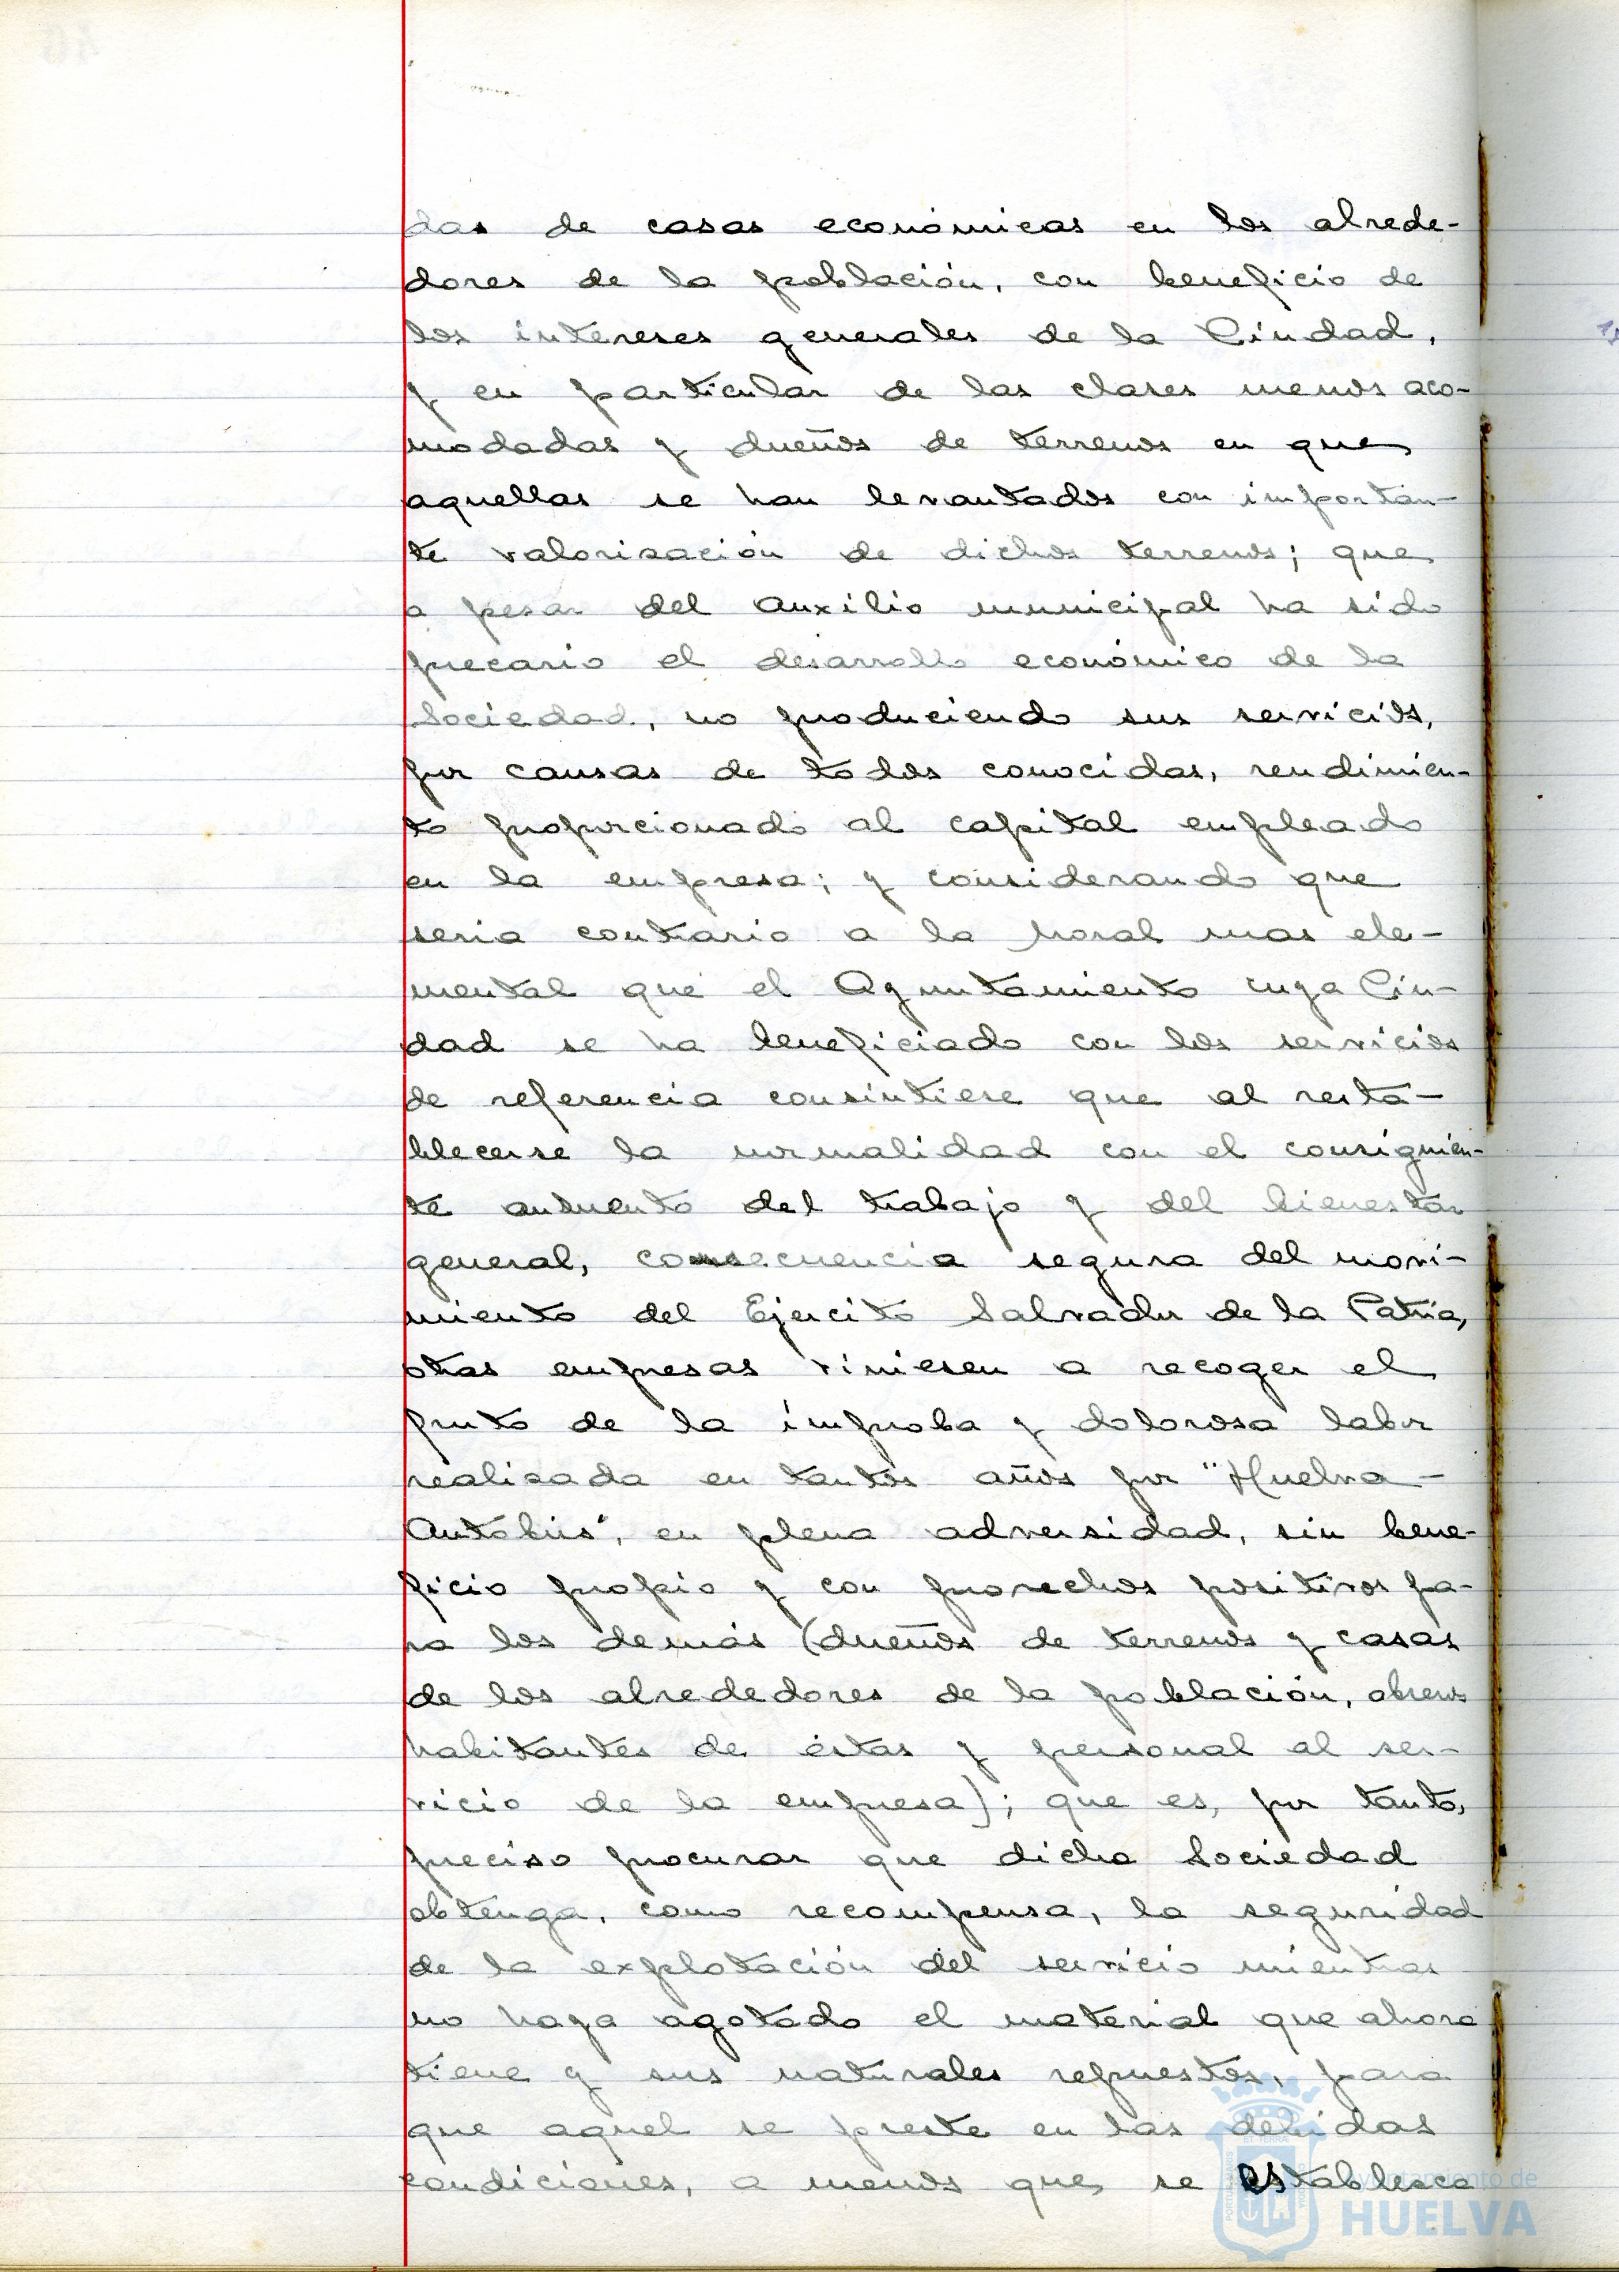 das de casas económicas en los alrede-
dores de la población, con beneficio de
los intereses generales de la Ciudad,
y en particular de las clases menos aco-
modadas y dueños de terrenos en que
aquellas se han levantados con importan-
te valorización de dichos terrenos; que
a pesar del auxilio municipal ha sido
precario el desarrollo económico de la
Sociedad, no produciendo sus servicios,
por causas de todos conocidas, rendimien-
to proporcionado al capital empleado
en la empresa; y considerando que
seria contrario a la moral mas ele-
mental que el Ayuntamiento cuya Ciu-
dad se ha beneficiado con los servicios
de referencia consintiese que al resta-
blecerse la normalidad con el consiguien-
te aumento del trabajo y del bienestar
general, consecuencia segura del movi-
miento del Ejercito Salvador de la Patria,
otras empresas viniesen a recoger el
fruto de la improba y dolorosa labor
realizada en tantos años por "Huelva-
Autobús", en plena adversidad, sin bene-
ficio propio y con provechos positivos pa-
ra los demás (dueños de terrenos y casas
de los alrededores de la población, obreros
habitantes de éstas y personal al ser-
vicio de la empresa); que es, por tanto,
preciso procurar que dicha Sociedad
obtenga, como recompensa, la seguridad
de la explotación del servicio mientras
no haya agotado el material que ahora
tiene y sus naturales repuestos, para
que aquel se preste en las debidas
condiciones, a menos que se establezca
Ayuntamiento de
HUELVA